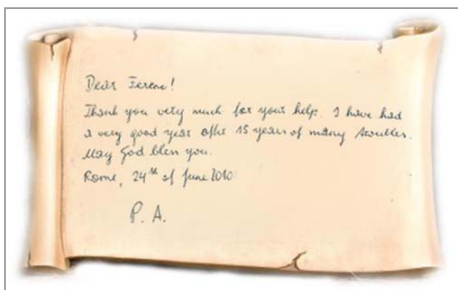 Dear Ferenc!
Thank you very much for your help. I have had
a very good year after 15 years of many troubles.
May God bless you.
Rome, 24th of June 2010
P. A.